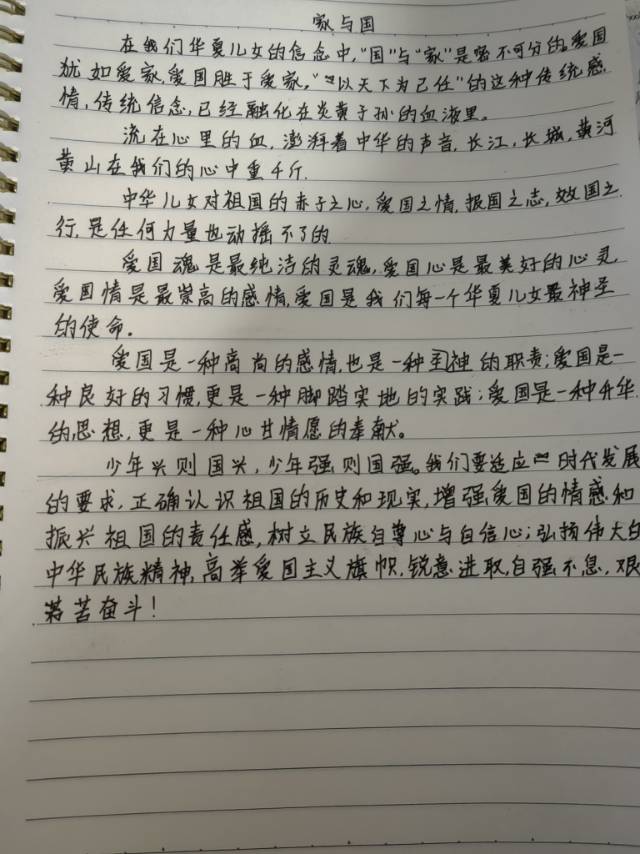 家与国
在我们华夏儿女的信念中,“国”与“家”是密不可分的。爱国
犹如爱家,爱国胜于爱家,“以天下为己任”的这种传统感
情,传统信念,已经融化在炎黄子孙的血液里。
流在心里的血,澎湃着中华的声音,长江,长城,黄河
黄山在我们的心中重千斤.
中华儿女对祖国的赤子之心,爱国之情,报国之志,效国之
行,是任何力量也动摇不了的.
爱国魂是最纯洁的灵魂,爱国心是最美好的心灵
爱国情是最崇高的感情,爱国是我们每一个华夏儿女最神圣
的使命。
爱国是一种高尚的感情,也是一种神的职责;爱国是一
种良好的习惯,更是一种脚踏实地的实践;爱国是一种升华
的思想,更是一种心甘情愿的奉献。
少年兴则国兴,少年强则国强。我们要适应时代发展
的要求,正确认识祖国的历史和现实,增强爱国的情感和
振兴祖国的责任感,树立民族自尊心与自信心;弘扬伟大的
中华民族精神,高举爱国主义旗帜,锐意进取,自强不息,艰
苦奋斗!